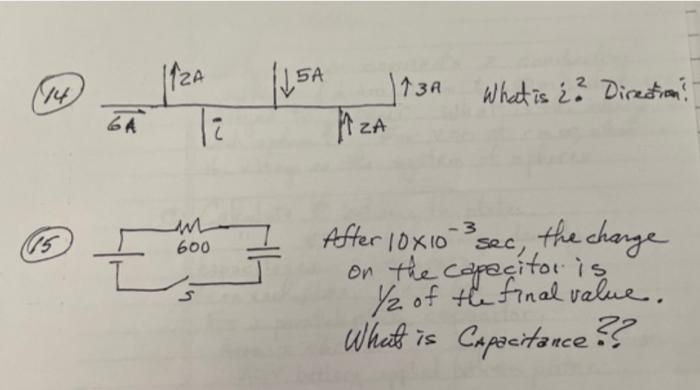 14
2A
5A
3A
What is i? Direction?
6A
i
2A
15
600
S
After 10×10⁻³ sec, the charge
on the capacitor is
1/2 of the final value.
What is Capacitance??